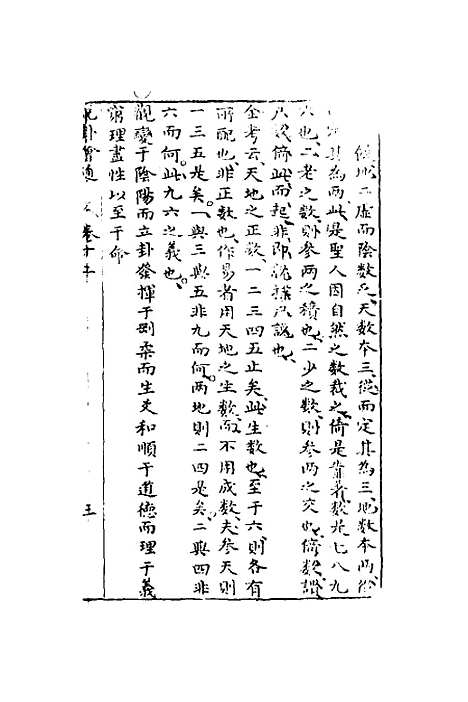 地二虛而陰數又天數本三從而定其為三地數本兩從
其為兩此是聖人因自然之數裁之倚是靠著數是七八九
六也二老之數則參兩之積也二少之數則參兩之交也倚數謂
从數倚此而起非即說揲以說也
金考云天地之正數一二三四五止矣此生數也至于六則各有
所配也非正數也作易者用天地之生數而不用成數夫參天則
一三五是矣一與三與五非九而何兩地則二四是矣二與四非
六而何此九六之義也
觀變于陰陽而立卦發揮于剛柔而生爻和順于道德而理于義
窮理盡性以至于命
卦會通 卷十五
五